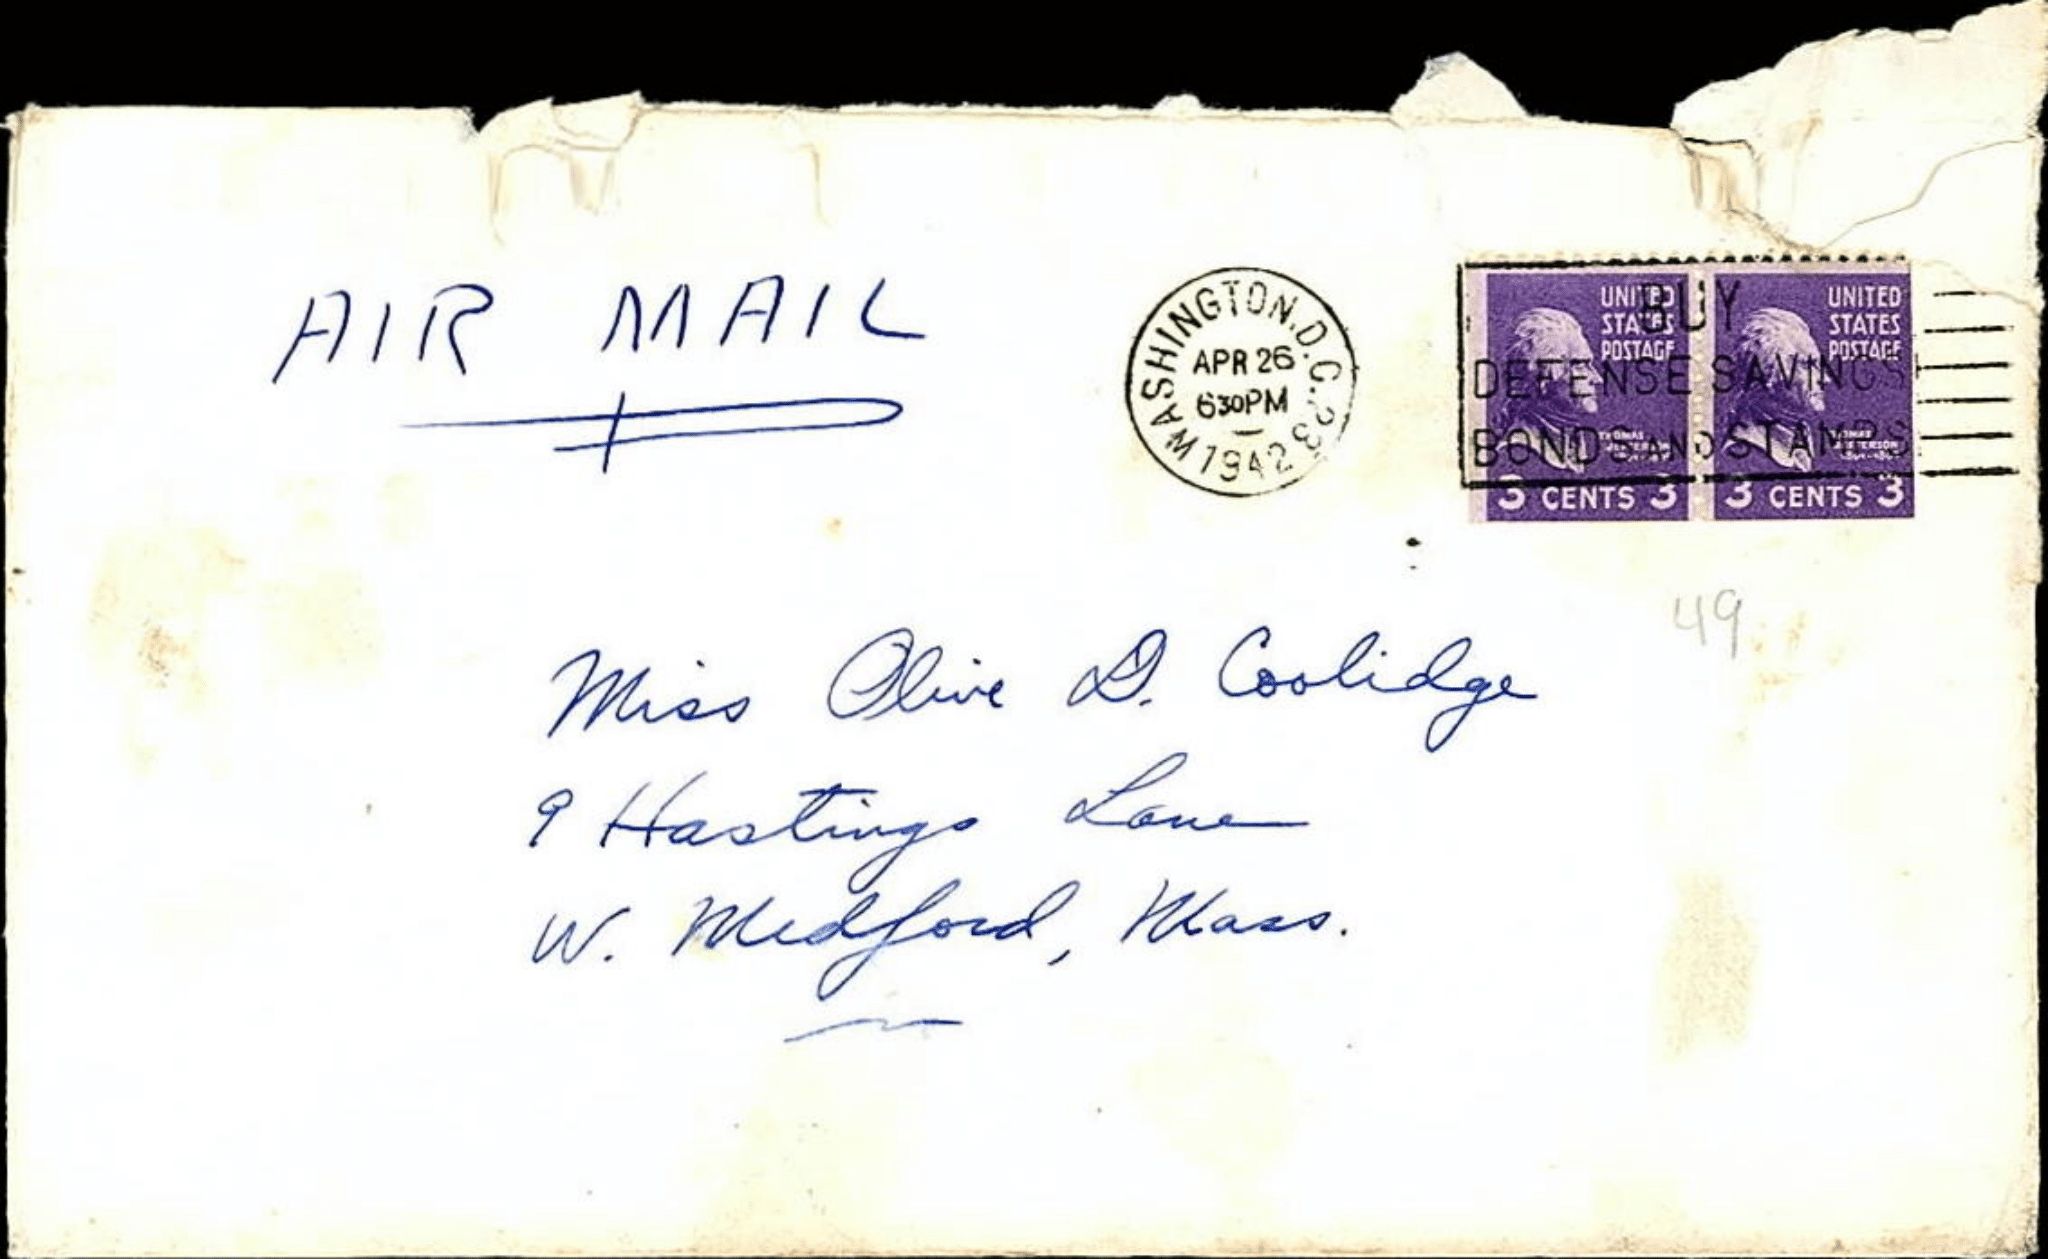 AIR MAIL
WASHINGTON, D.C. 23
APR 26
630PM
1942
BUY
DEFENSE SAVINGS
BONDS AND STAMPS
UNITED
STATES
POSTAGE
THOMAS
JEFFERSON
3 CENTS 3
UNITED
STATES
POSTAGE
THOMAS
JEFFERSON
3 CENTS 3
49
Miss Olive D. Coolidge
9 Hastings Lane
W. Medford, Mass.